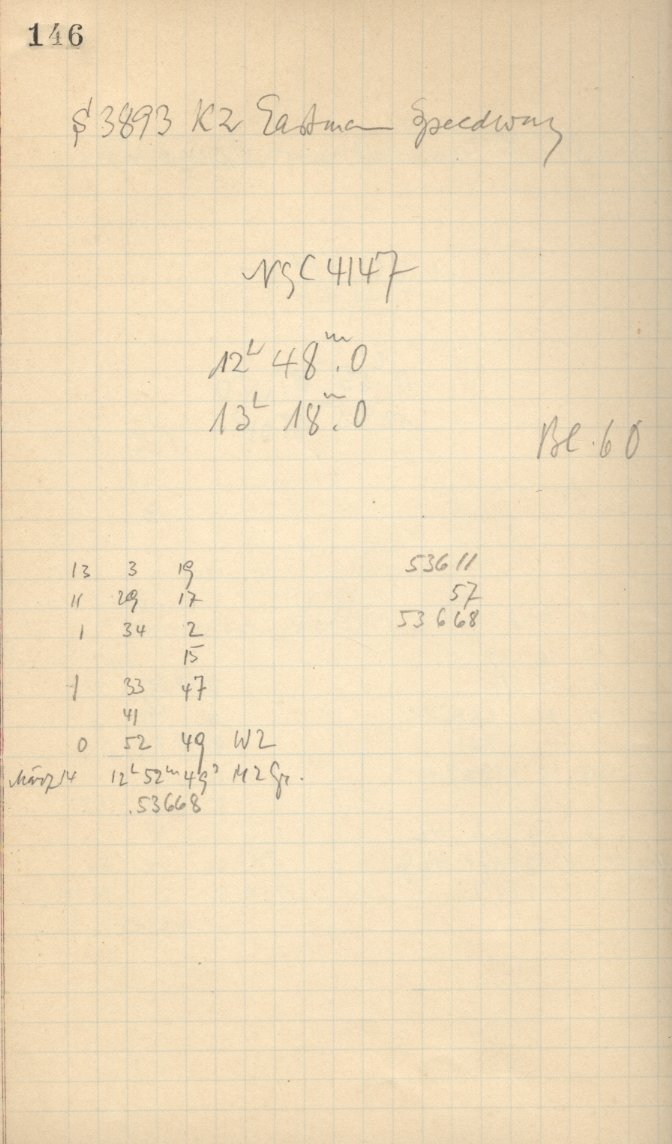 146
S 3893 K2 Eastman Speedway
NGC 4147
12h 48m.0
13h 18m.0
Bl. 60
13 3 19
11 29 17
1 34 2
15
1 33 47
41
0 52 49 W2
März 14 12h 52m 49s M2Gr.
.53668
53611
57
53668